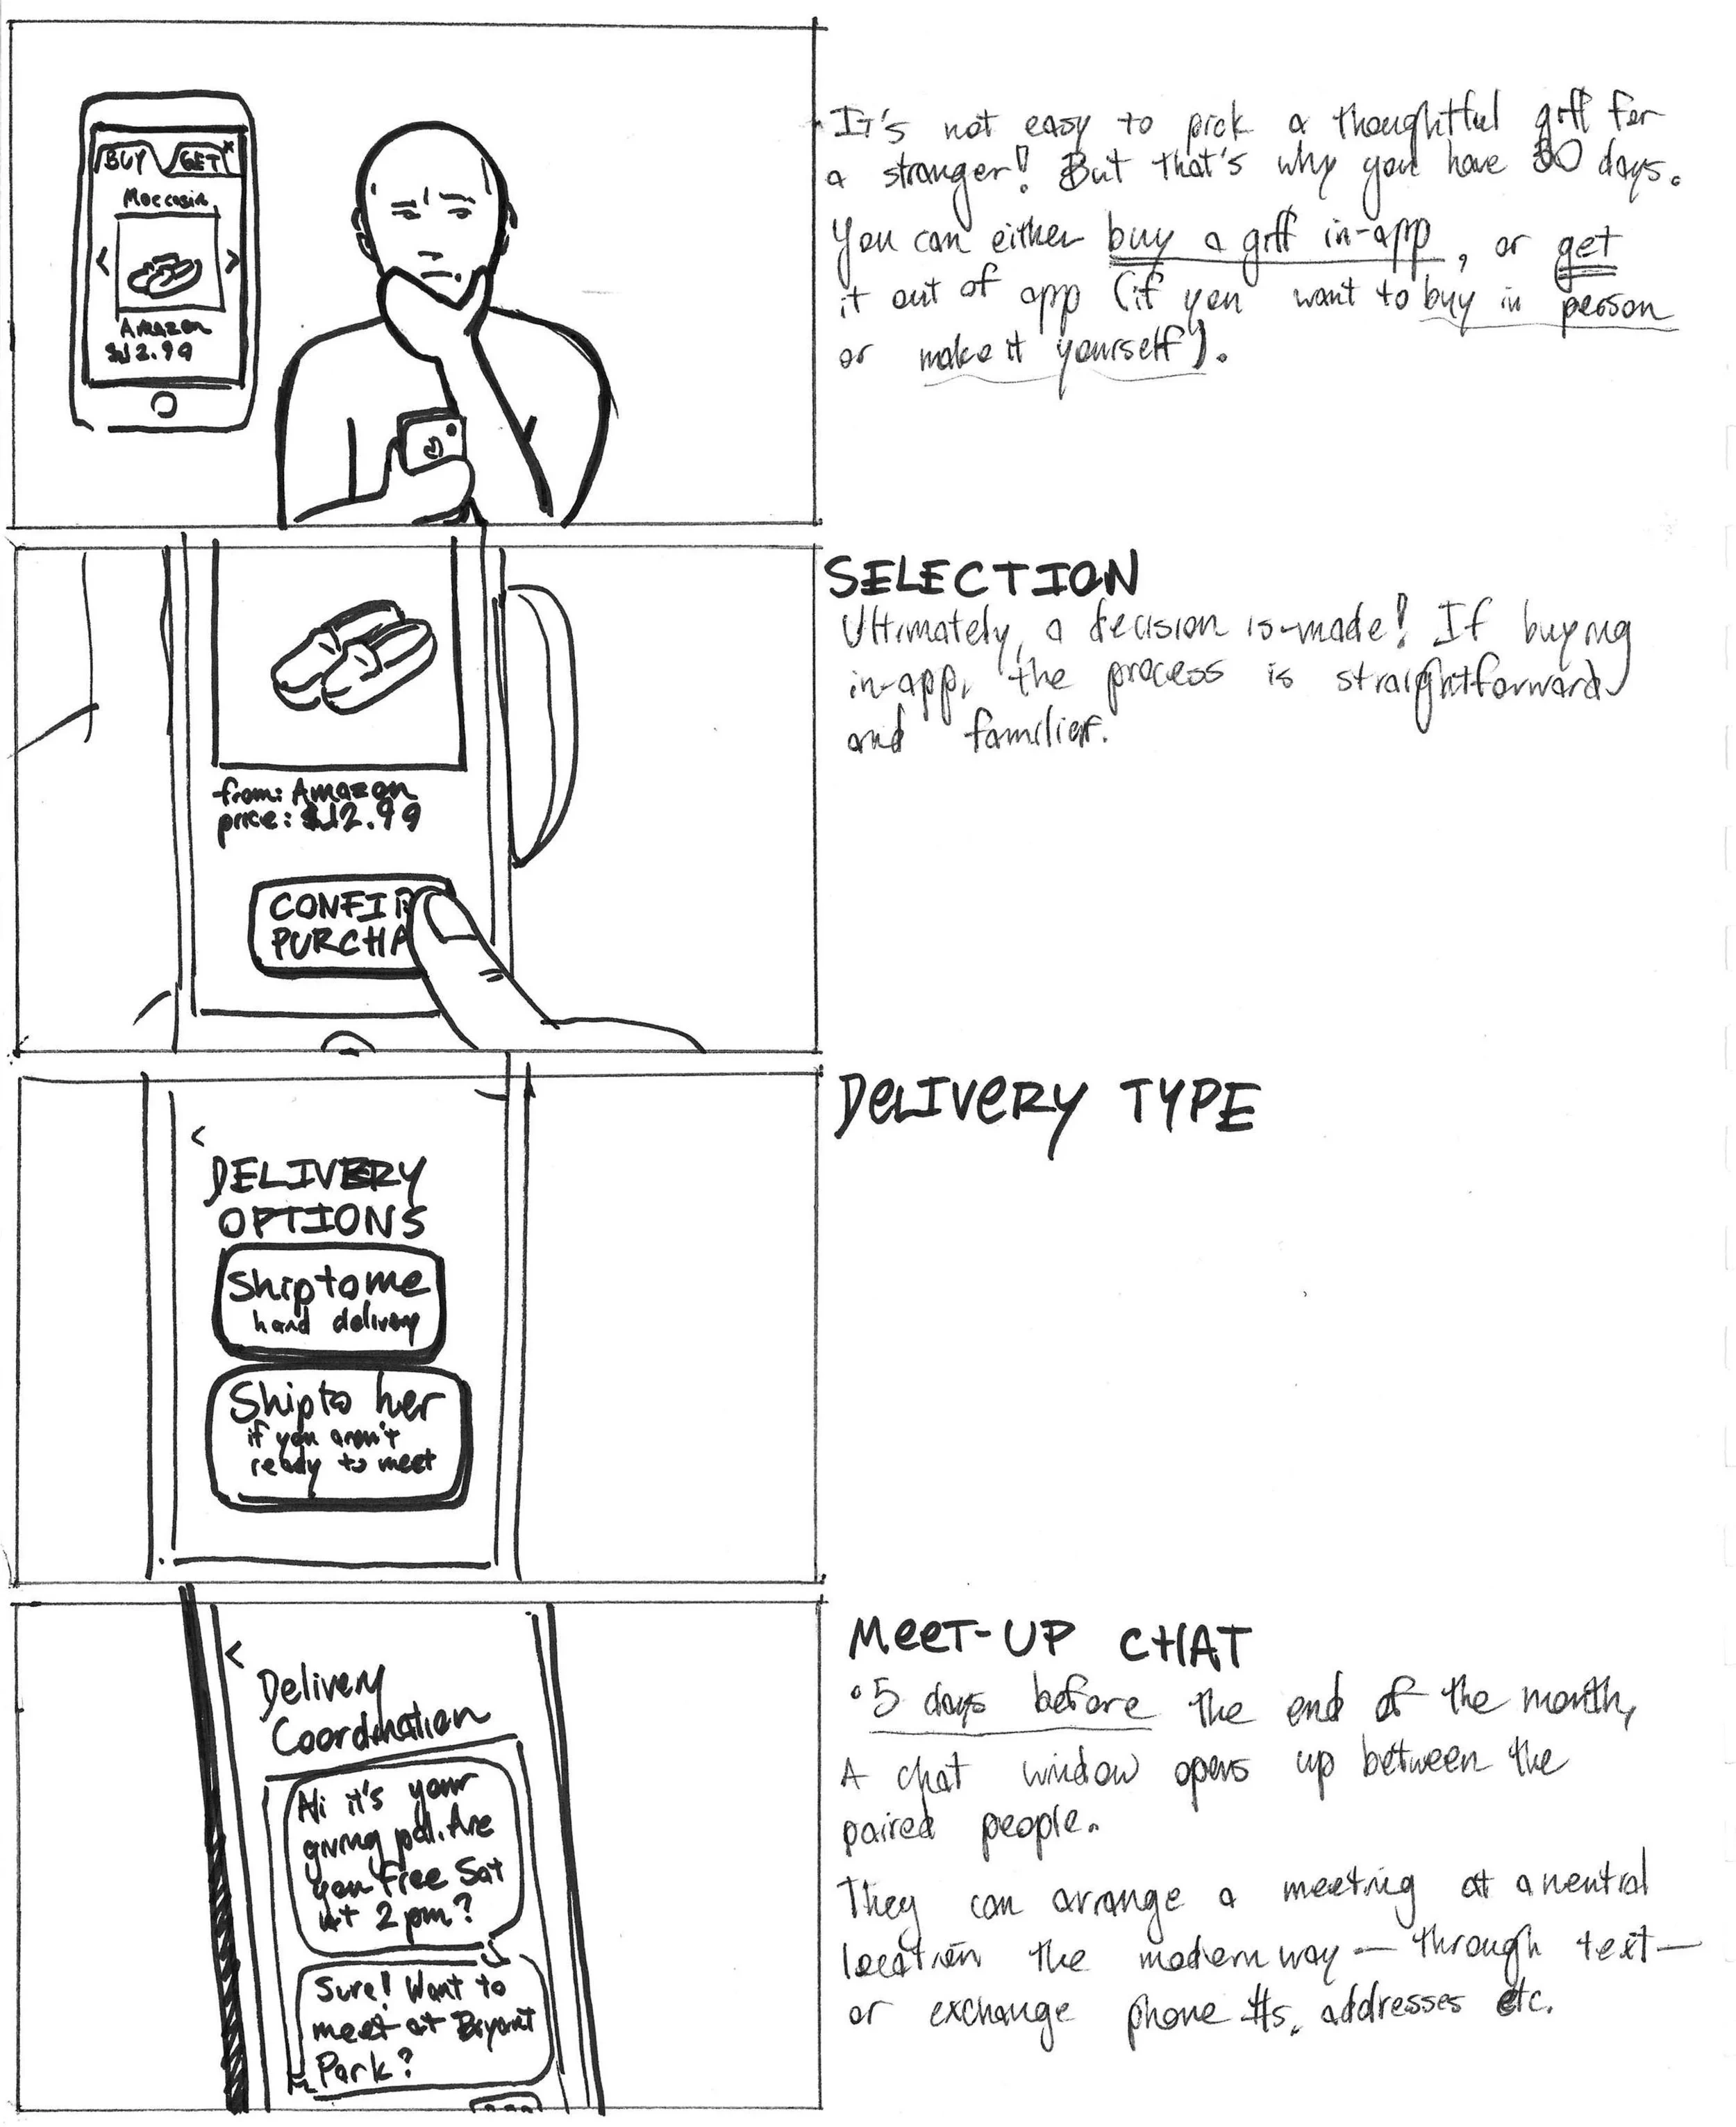 BUY GET x
Moccasin
< >
Amazon
$12.99
It's not easy to pick a thoughtful gift for
a stranger! But that's why you have 30 days.
You can either buy a gift in-app, or get
it out of app (if you want to buy in person
or make it yourself).
from: Amazon
price: $12.99
CONFIR
PURCHA
SELECTION
Ultimately, a decision is made! If buying
in-app, the process is straightforward
and familiar.
<
DELIVERY
OPTIONS
Ship to me
hand delivery
Ship to her
if you aren't
ready to meet
DELIVERY TYPE
<
Delivery
Coordination
Hi it's your
giving pal. Are
you free Sat
at 2 pm?
Sure! Want to
meet at Bryant
Park?
MEET-UP CHAT
• 5 days before the end of the month,
A chat window opens up between the
paired people.
They can arrange a meeting at a neutral
location the modern way — through text —
or exchange phone #s, addresses etc.